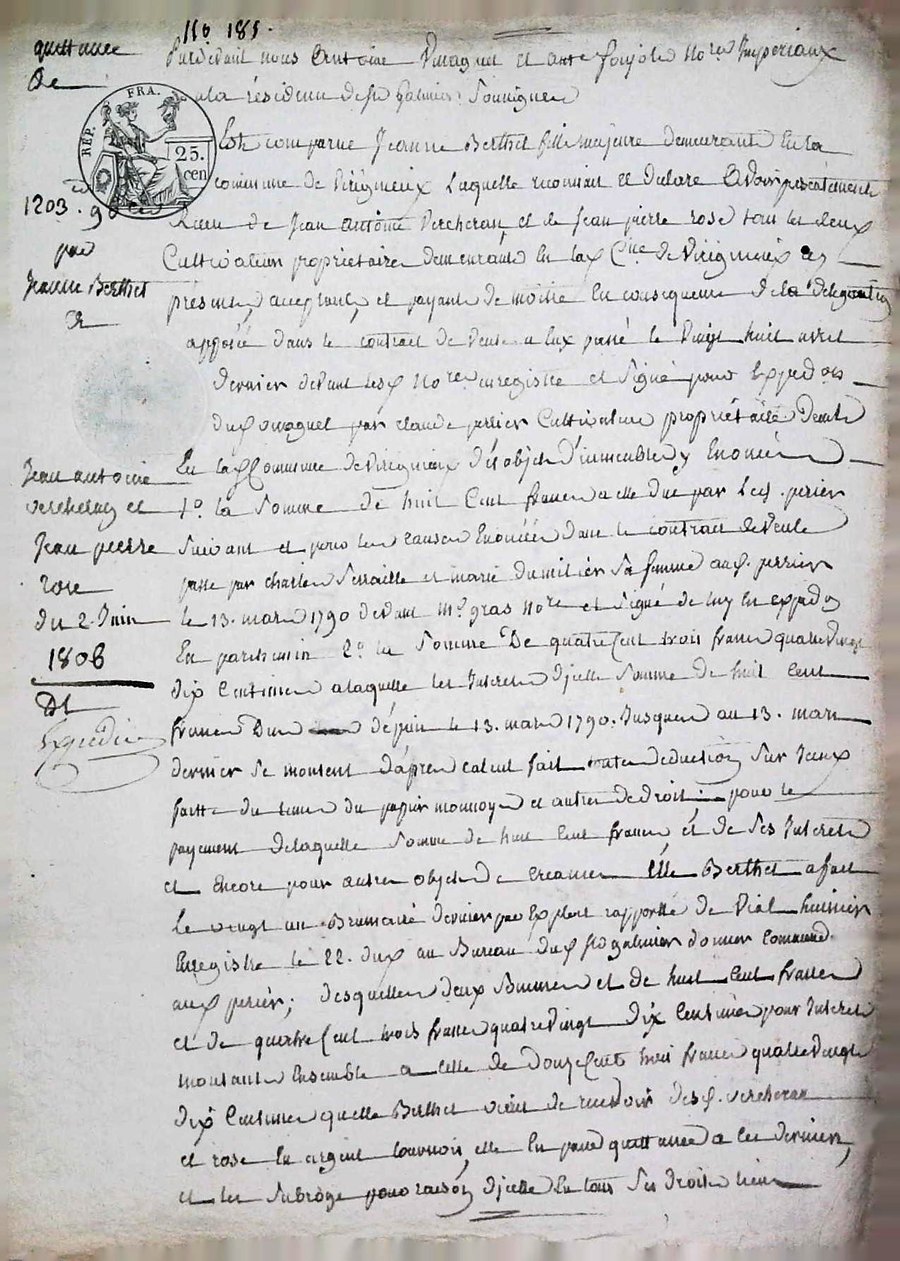 No 185.
quittance
De
REP. FRA.
25.
cen
1203. 90 cen
par
Jeanne Berthet
a
Jean antoine
vercherand et
Jean pierre
rose
du 2. Juin
1806
Dt
Expedié
Pardevant nous Antoine et ant. Nores Imperiaux
a la résidence de st Galmier Soussignés
Est comparue Jeanne Berthet fille majeure demeurante en la
commune de Virigneux Laquelle reconnait et declare Avoir présentement
Recu de Jean Antoine Vercherand et de Jean pierre rose tous les deux
Cultivateurs propriétaires demeurants En lad. Cne de Virigneux
présents acceptants et payants de moitié En consequence de la délégation
apposée dans le contrat de vente a Eux passé le Vingt huit avril
dernier devant lesd. Nores enregistré et Signé pour Expedon
dud. par claude perrier Cultivateur propriétaire Demt
En lad. Commune de Virigneux des objets d'immeubles y Enoncés
1o. la Somme de huit Cent francs a elle due par Led. perrier
Suivant et pour les causes Enoncées dans le contrat de vente
passé par charles et marie sa femme aud. perrier
le 13. mars 1790 devant Me. gras Nore et Signé de luy en expedon
En parchemin 2o. la Somme De quatre Cent trois francs quatre vingt
dix Centimes a laquelle les Interets d'icelle Somme de huit Cent
francs Dus depuis le 13. mars 1790. Jusques au 13. mars
dernier se montent d'apres calcul fait toute deduction Sur Iceux
faitte du tems du papier monnoye et autres de droit pour le
payement de laquelle Somme de huit Cent francs et de ses Interets
et Encore pour autres objets de creances Elle Berthet a fait
le vingt un Brumaire dernier par Exploit rapporté de Vial huissier
Enregistré le 22. dud. au Bureau dud. st galmier donner Command.
aud. perrier; desquelles deux Sommes et de huit Cent francs
et de quatre Cent trois francs quatre vingt dix Centimes pour Interets
montants Ensemble a celle de Douze Cents trois francs quatre vingt
dix Centimes quelle Berthet vient de recevoir desd. vercherand
et rose En argent elle En passe quittance a ces derniers
et les Subroge pour raison d'icelle En tous Ses droits